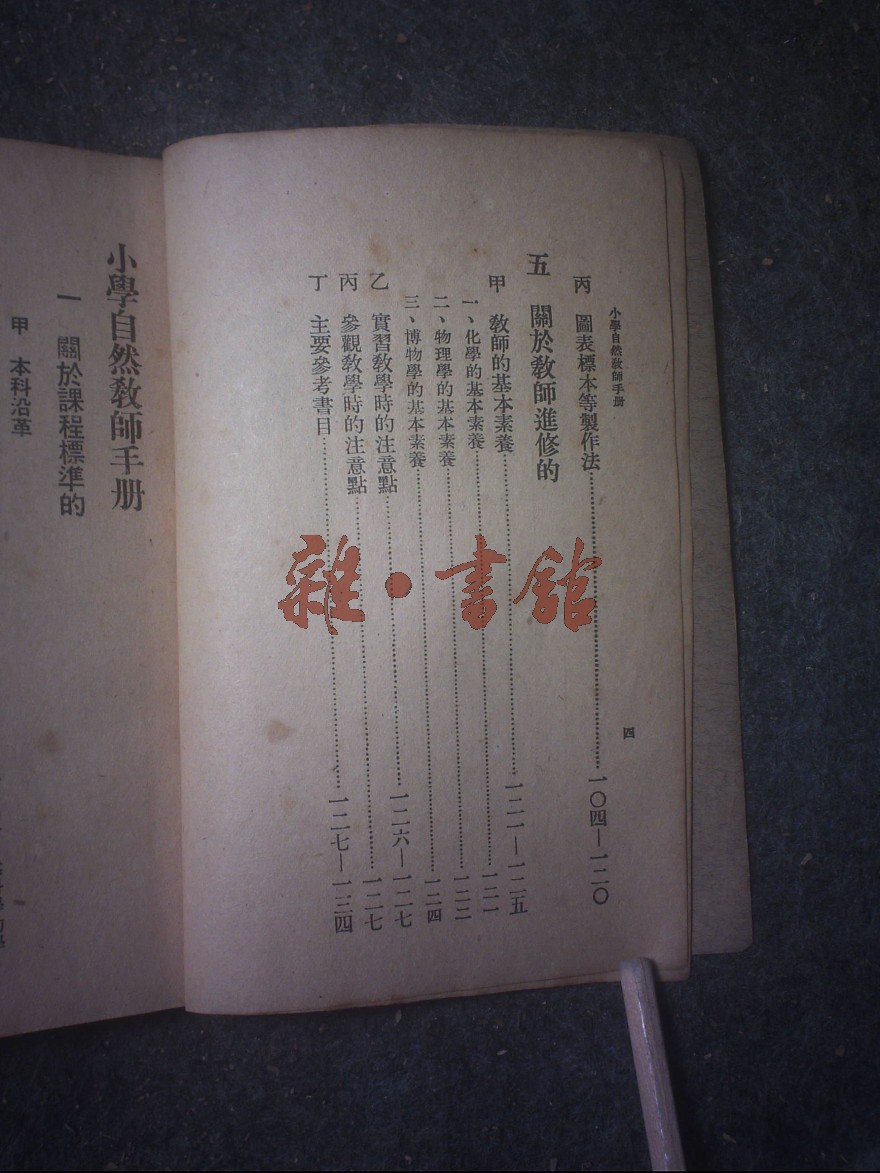 小學自然敎師手册
四
丙 圖表標本等製作法……一〇四—一二〇
五 關於敎師進修的
甲 敎師的基本素養……一二一—一二五
一、化學的基本素養……一二一
二、物理學的基本素養……一二二
三、博物學的基本素養……一二四
乙 實習敎學時的注意點……一二六—一二七
丙 參觀敎學時的注意點……一二七
丁 主要參考書目……一二七—一三四
小學自然敎師手册
一 關於課程標準的
甲 本科沿革
雜·書館